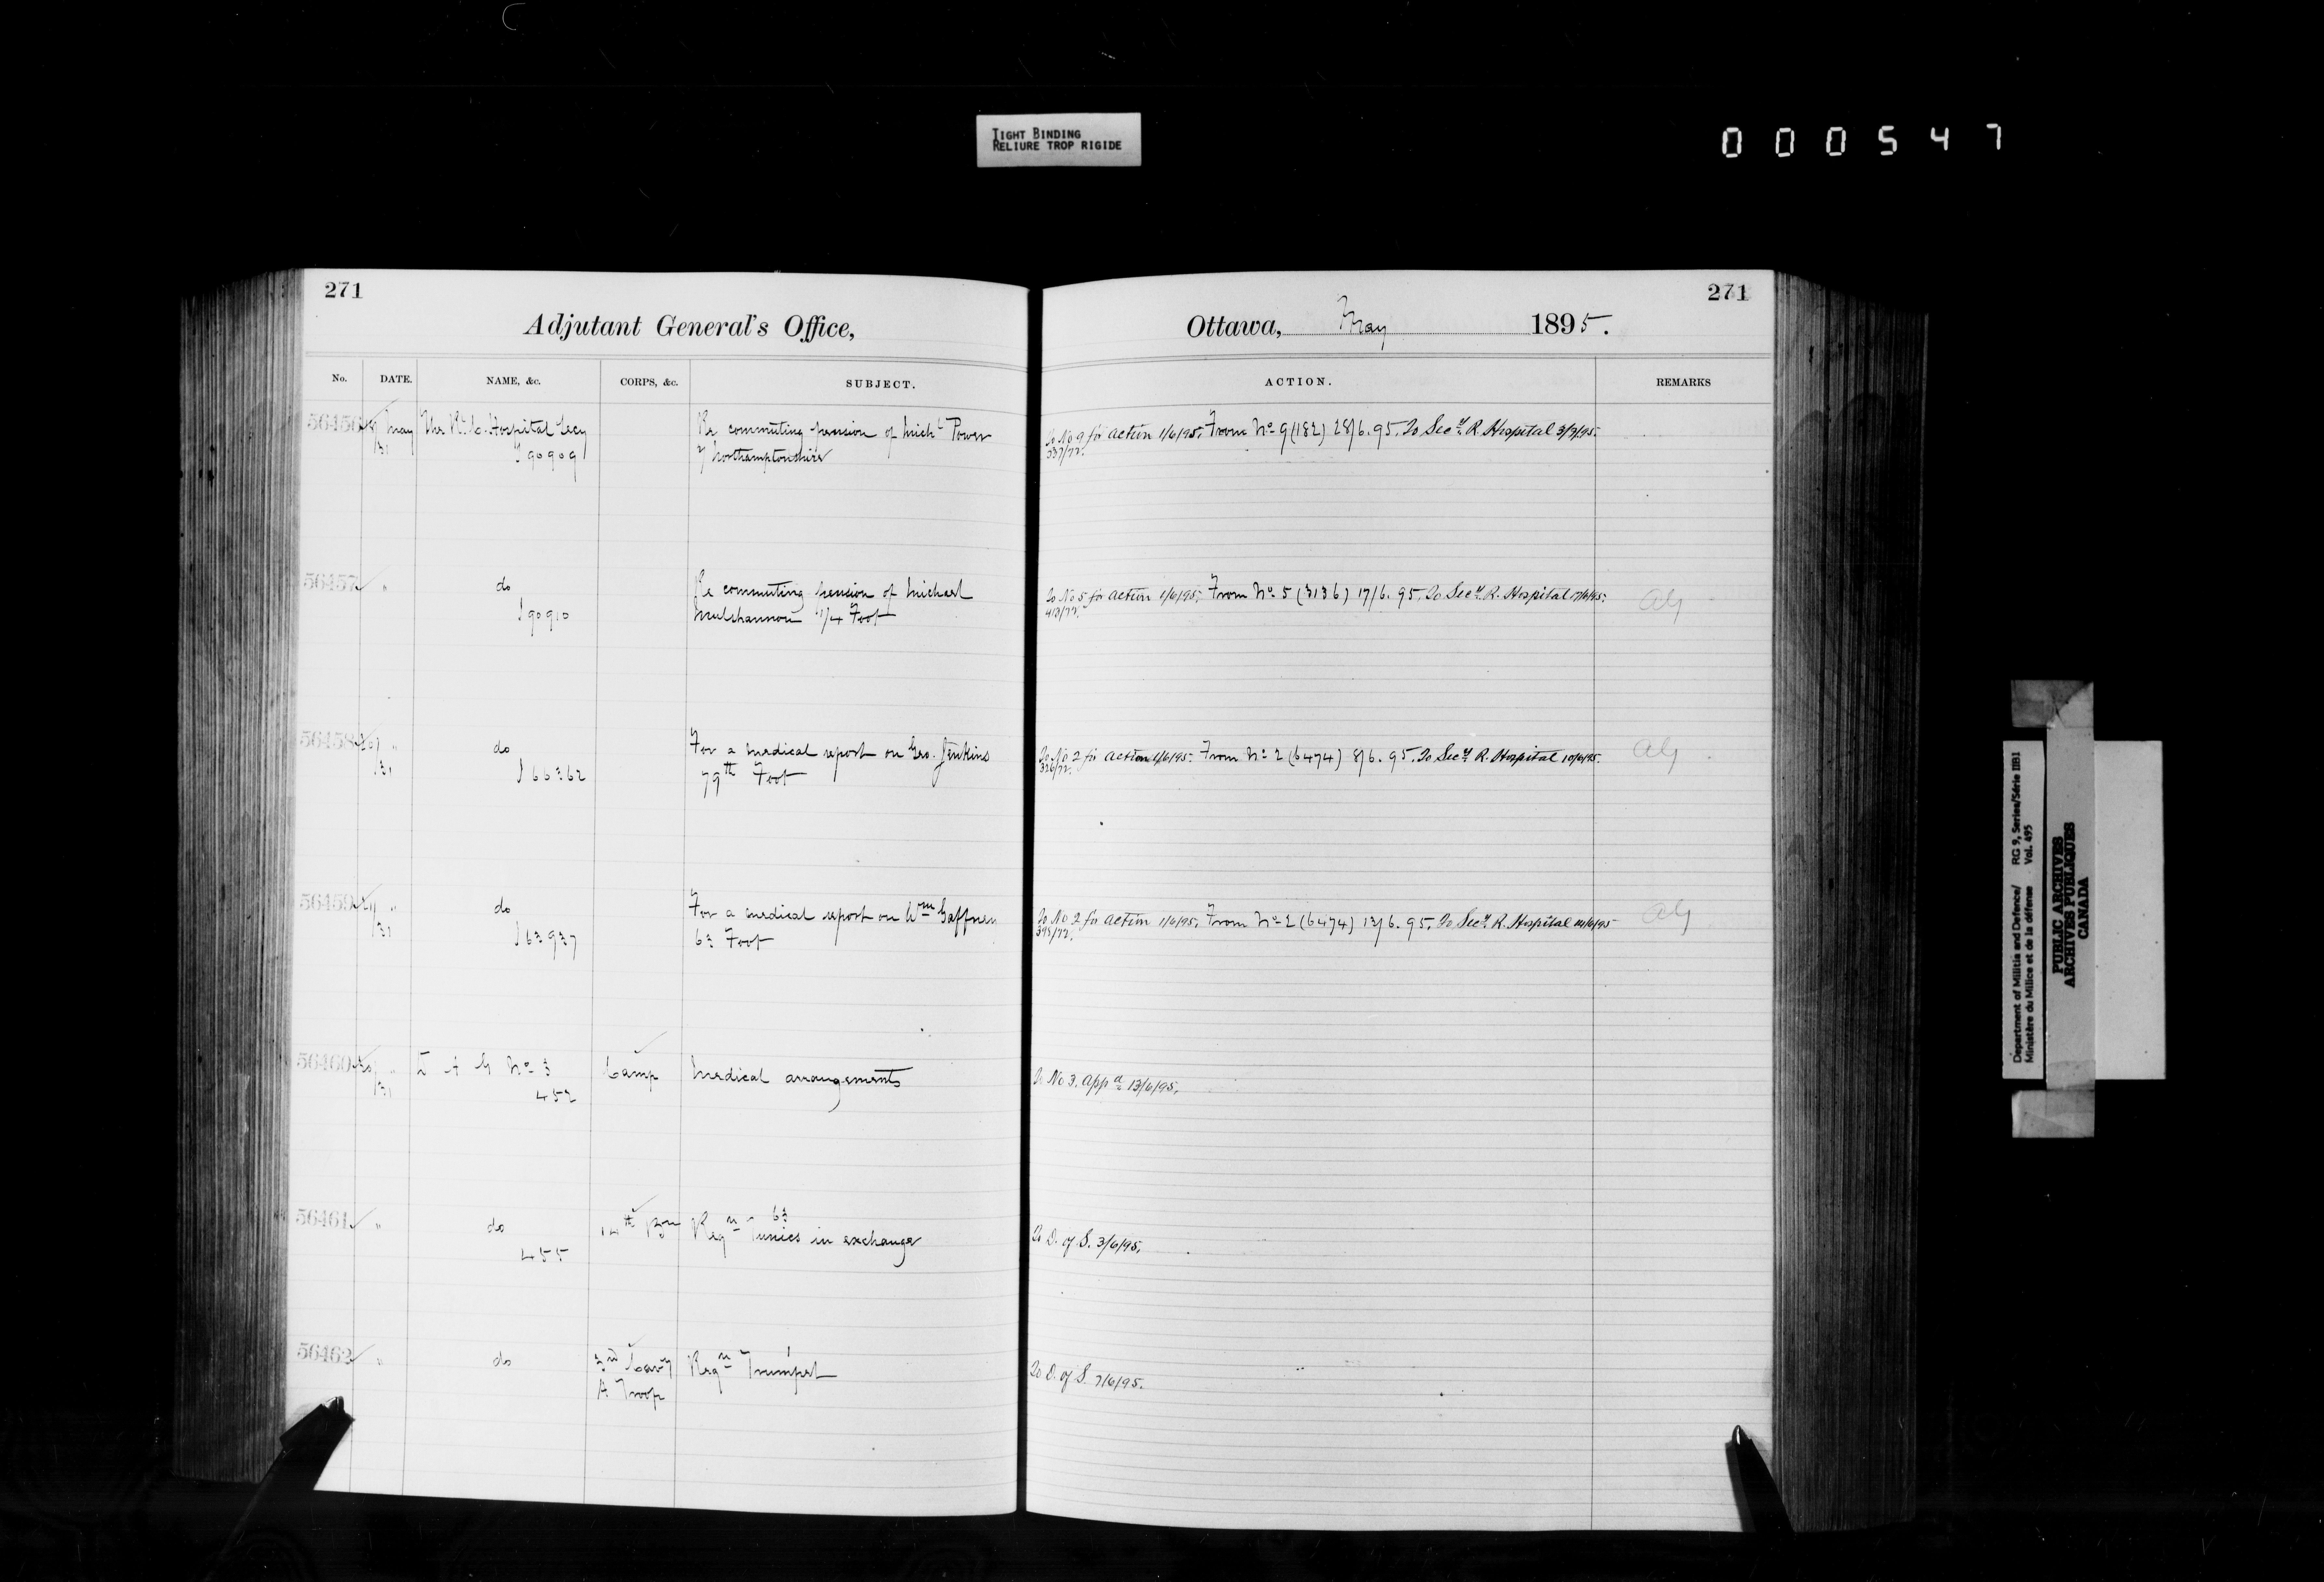 TIGHT BINDING
RELIURE TROP RIGIDE
000547
271
Adjutant General's Office,
No. DATE. NAME, &c. CORPS, &c. SUBJECT.
56456 May The R. C. Hospital Secy Re commuting pension of Mich^l Power
/31 90909 Northamptonshire
56457 " do Re commuting pension of Michael
90910 1/4 Foot
56458 " do For a medical report on Geo. Jenkins
/31 66362 79th Foot
56459 " do For a medical report on Wm Gaffney
/31 63937 63 Foot
56460 " D A G No 3 Camp Medical arrangements
/31 452
56461 " do 14th Bn Reqn 63 Tunics in exchange
455
56462 " do 3rd Cavy Reqn Trumpet
A Troop
271
Ottawa, May 1895.
ACTION. REMARKS
To No 9 for action 1/6/95. From No 9 (182) 28/6.95. To Secy R. Hospital 3/7/95.
337/72.
To No 5 for action 1/6/95. From No 5 (3136) 17/6.95. To Secy R. Hospital 17/6/95.
413/72.
To No 2 for action 1/6/95. From No 2 (6474) 8/6.95. To Secy R. Hospital 10/6/95.
326/72.
To No 2 for action 1/6/95. From No 2 (6474) 12/6.95. To Secy R. Hospital
395/72.
To No 3. appd 13/6/95.
To D. of S. 3/6/95.
To D. of S. 7/6/95.
Department of Militia and Defence/ RG 9, Series/Série IIB1
Ministère du Milice et de la défense Vol. 495
PUBLIC ARCHIVES
ARCHIVES PUBLIQUES
CANADA